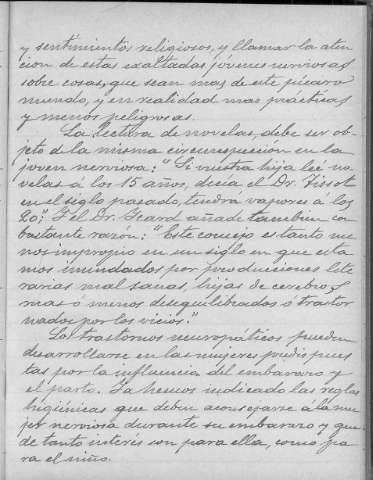 y sentimientos religiosos, y llamar la aten
cion de estas exaltadas jóvenes nerviosas
sobre cosas, que sean mas de este picaro
mundo, y en realidad mas prácticas
y menos peligrosas.
La lectura de novelas, debe ser ob-
jeto de la misma circunspección en la
joven nerviosa: "Si vuestra hija leé no
velas á los 15 años, decia el Dr. Tissot
en el siglo pasado, tendrá vapores á los
20". Y el Dr. Geard añade tambien con
bastante razón: "Este consejo es tanto me
nos impropio en un siglo en que esta
mos inundados por producciones lite
rarias mal sanas, hijas de cerebros
mas ó menos desequilibrados ó trastor
nados por los vicios."
Los trastornos neuropáticos pueden
desarrollarse en las mujeres predispues
tas por la influencia del embarazo y
el parto. Ya hemos indicado las reglas
higiénicas que deben aconsejarse á la mu
jer nerviosa durante su embarazo y que
de tanto interés son para ella, como pa
ra el niño.